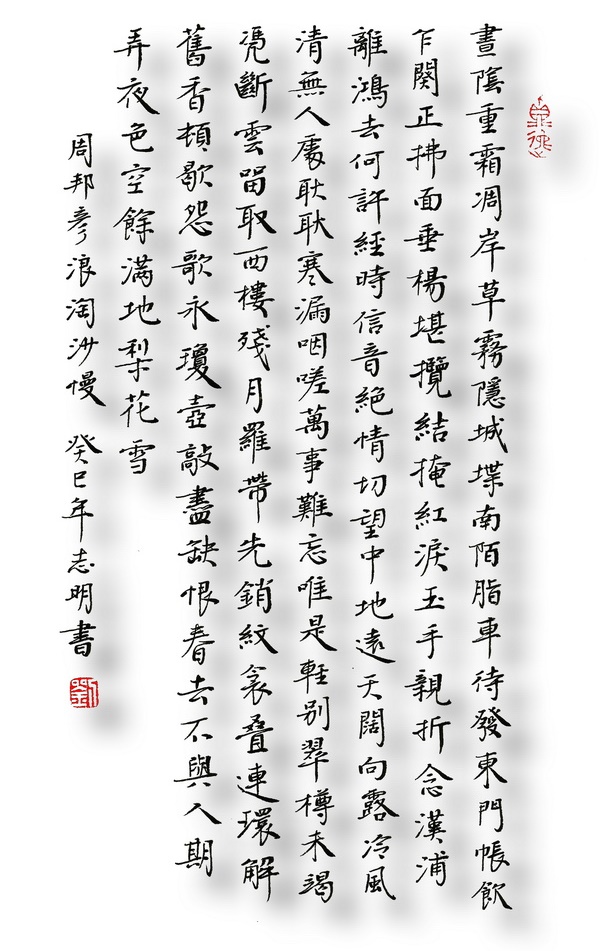 晝陰重霜凋岸草霧隱城堞南陌脂車待發東門帳飲
乍闋正拂面垂楊堪攬結掩紅淚玉手親折念漢浦
離鴻去何許經時信音絕情切望中地遠天闊向露冷風
清無人處耿耿寒漏咽嗟萬事難忘唯是輕別翠樽未竭
凴斷雲留取西樓殘月羅帶光銷紋衾叠連環解
舊香頓歇怨歌永瓊壺敲盡缺恨春去不與人期
弄夜色空餘滿地梨花雪
周邦彥浪淘沙慢 癸巳年志明書
劉